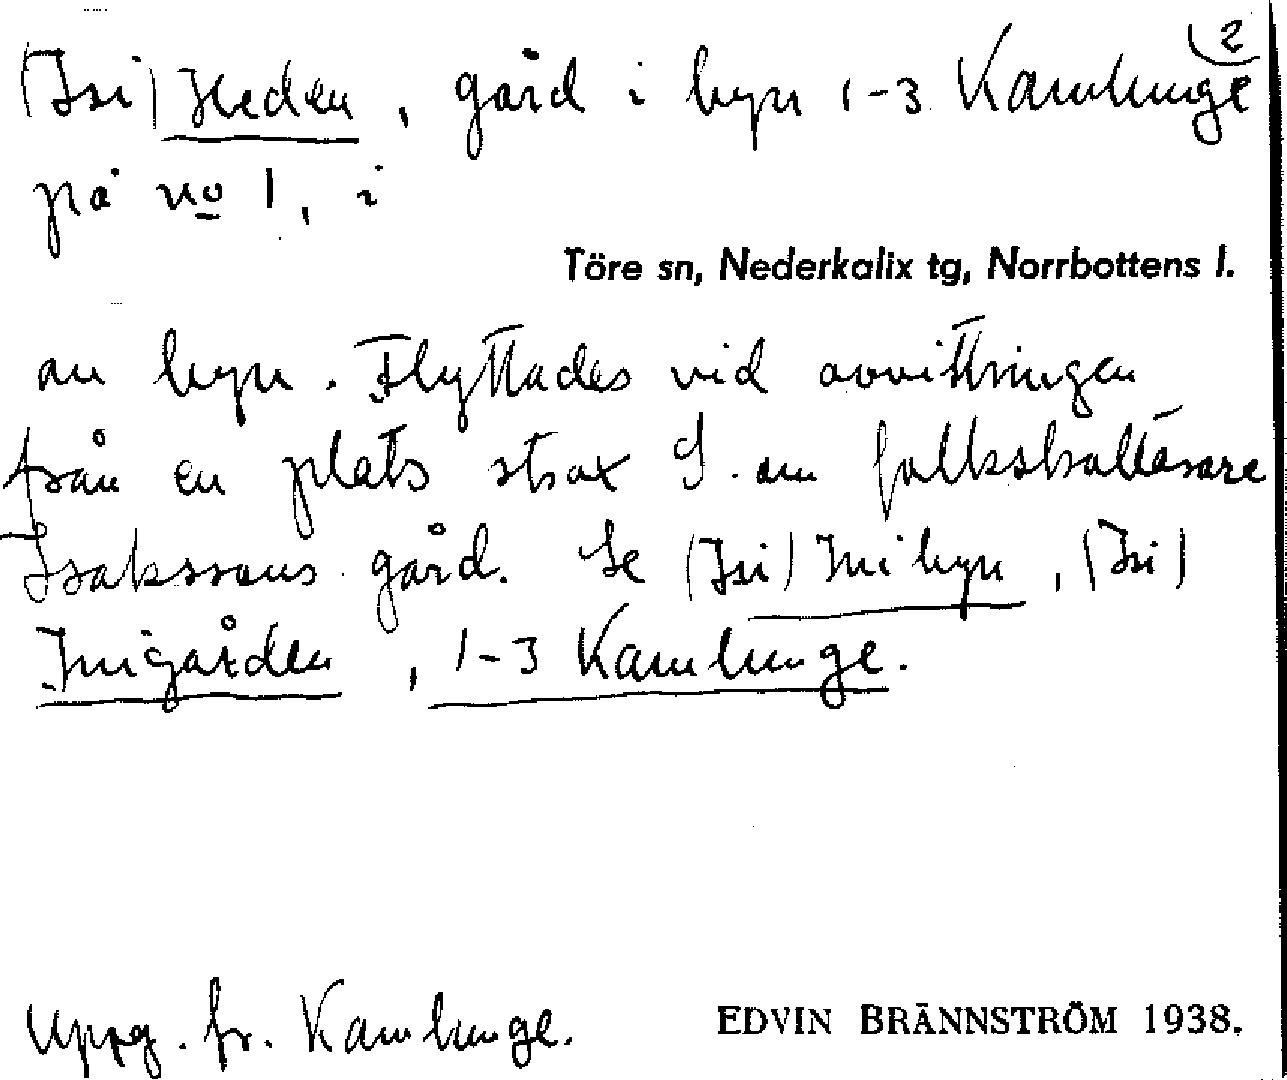 2
(Isi) Heden, gård i byn 1-3 Kamlunge
på no 1, i
Töre sn, Nederkalix tg, Norrbottens l.
av byn. Flyttades vid avvittringen
från en plats strax S. om
Isakssons gård. Se (Isi) Inibyn, (Isi)
Inigården, 1-3 Kamlunge.
Uppg. fr. Kamlunge.
EDVIN BRÄNNSTRÖM 1938.